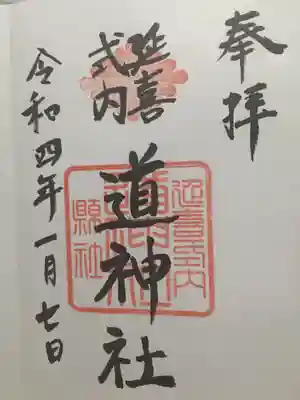 奉拝
延喜
式内
道神社
延喜式内
縣社
令和四年一月七日